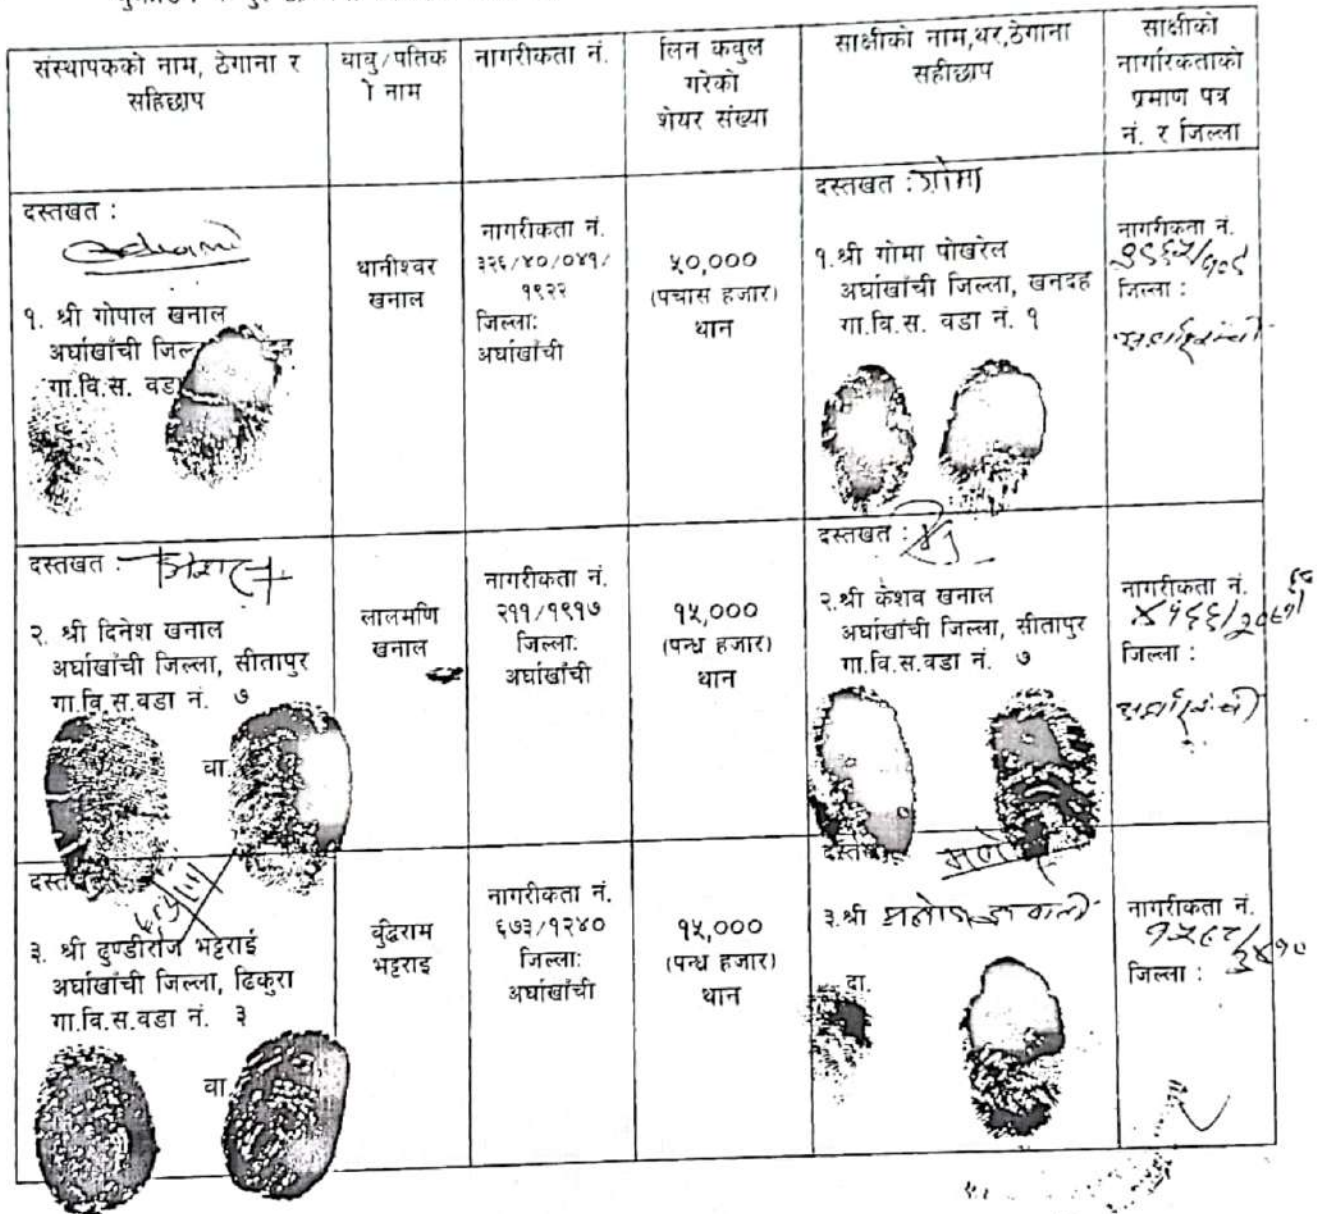 संस्थापकको नाम, ठेगाना र
सहिछाप
बाबु/पतिक
ो नाम
नागरीकता नं.
लिन कबुल
गरेको
शेयर संख्या
साक्षीको नाम,थर,ठेगाना
सहीछाप
साक्षीको
नागरिकताको
प्रमाण पत्र
नं. र जिल्ला
दस्तखत :
१. श्री गोपाल खनाल
अर्घाखाँची जिल्
गा.वि.स. वडा
थानीश्वर
खनाल
नागरीकता नं.
३२६/४०/०४१/
१९२२
जिल्ला:
अर्घाखाँची
५०,०००
(पचास हजार)
थान
दस्तखत : गोमा
१.श्री गोमा पोखरेल
अर्घाखाँची जिल्ला, खनदह
गा.वि.स. वडा नं. १
नागरीकता नं.
जिल्ला :
अर्घाखाँची
दस्तखत :
२. श्री दिनेश खनाल
अर्घाखाँची जिल्ला, सीतापुर
गा.वि.स.वडा नं. ७
बा.
लालमणि
खनाल
नागरीकता नं.
२११/१९१७
जिल्ला:
अर्घाखाँची
१५,०००
(पन्ध्र हजार)
थान
दस्तखत :
२.श्री केशव खनाल
अर्घाखाँची जिल्ला, सीतापुर
गा.वि.स.वडा नं. ७
नागरीकता नं.
जिल्ला :
अर्घाखाँची
३. श्री ढुण्डीराज भट्टराई
अर्घाखाँची जिल्ला, ढिकुरा
गा.वि.स.वडा नं. ३
बा
बुद्धिराम
भट्टराइ
नागरीकता नं.
६७३/१२४०
जिल्ला:
अर्घाखाँची
१५,०००
(पन्ध्र हजार)
थान
३.श्री
दा.
नागरीकता नं.
जिल्ला :